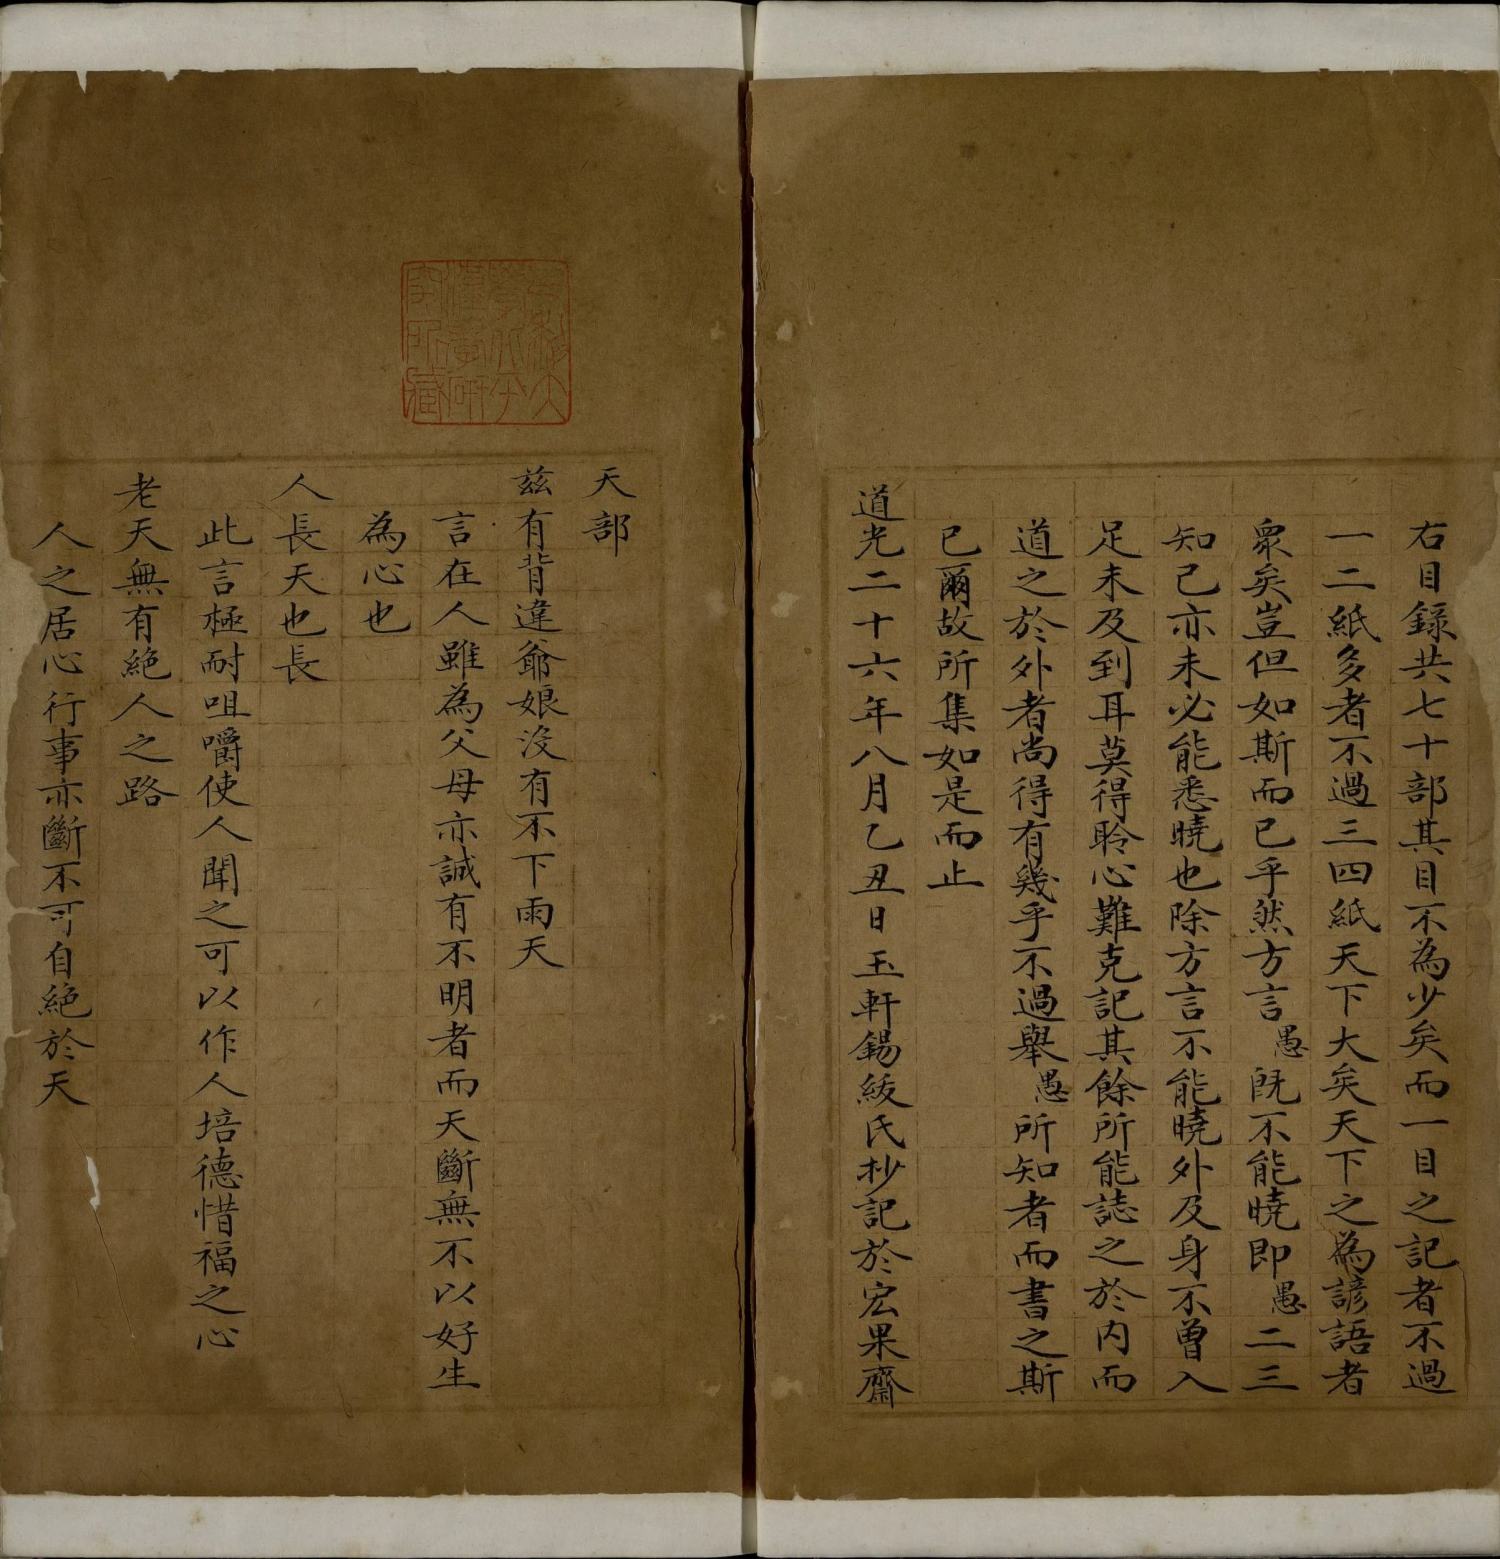 右目録共七十部其目不為少矣而一目之記者不過
一二紙多者不過三四紙天下大矣天下之為諺語者
衆矣豈但如斯而已乎然方言愚既不能曉即愚二三
知己亦未必能悉曉也除方言不能曉外及身不曾入
足未及到耳莫得聆心難克記其餘所能誌之於内而
道之於外者尚得有幾乎不過舉愚所知者而書之斯
已爾故所集如是而止
道光二十六年八月乙丑日玉軒錫綾氏抄記於宏果齋
天部
兹有背違爺娘沒有不下雨天
言在人雖為父母亦誠有不明者而天斷無不以好生
為心也
人長天也長
此言極耐咀嚼使人聞之可以作人培德惜福之心
老天無有絶人之路
人之居心行事亦斷不可自絶於天